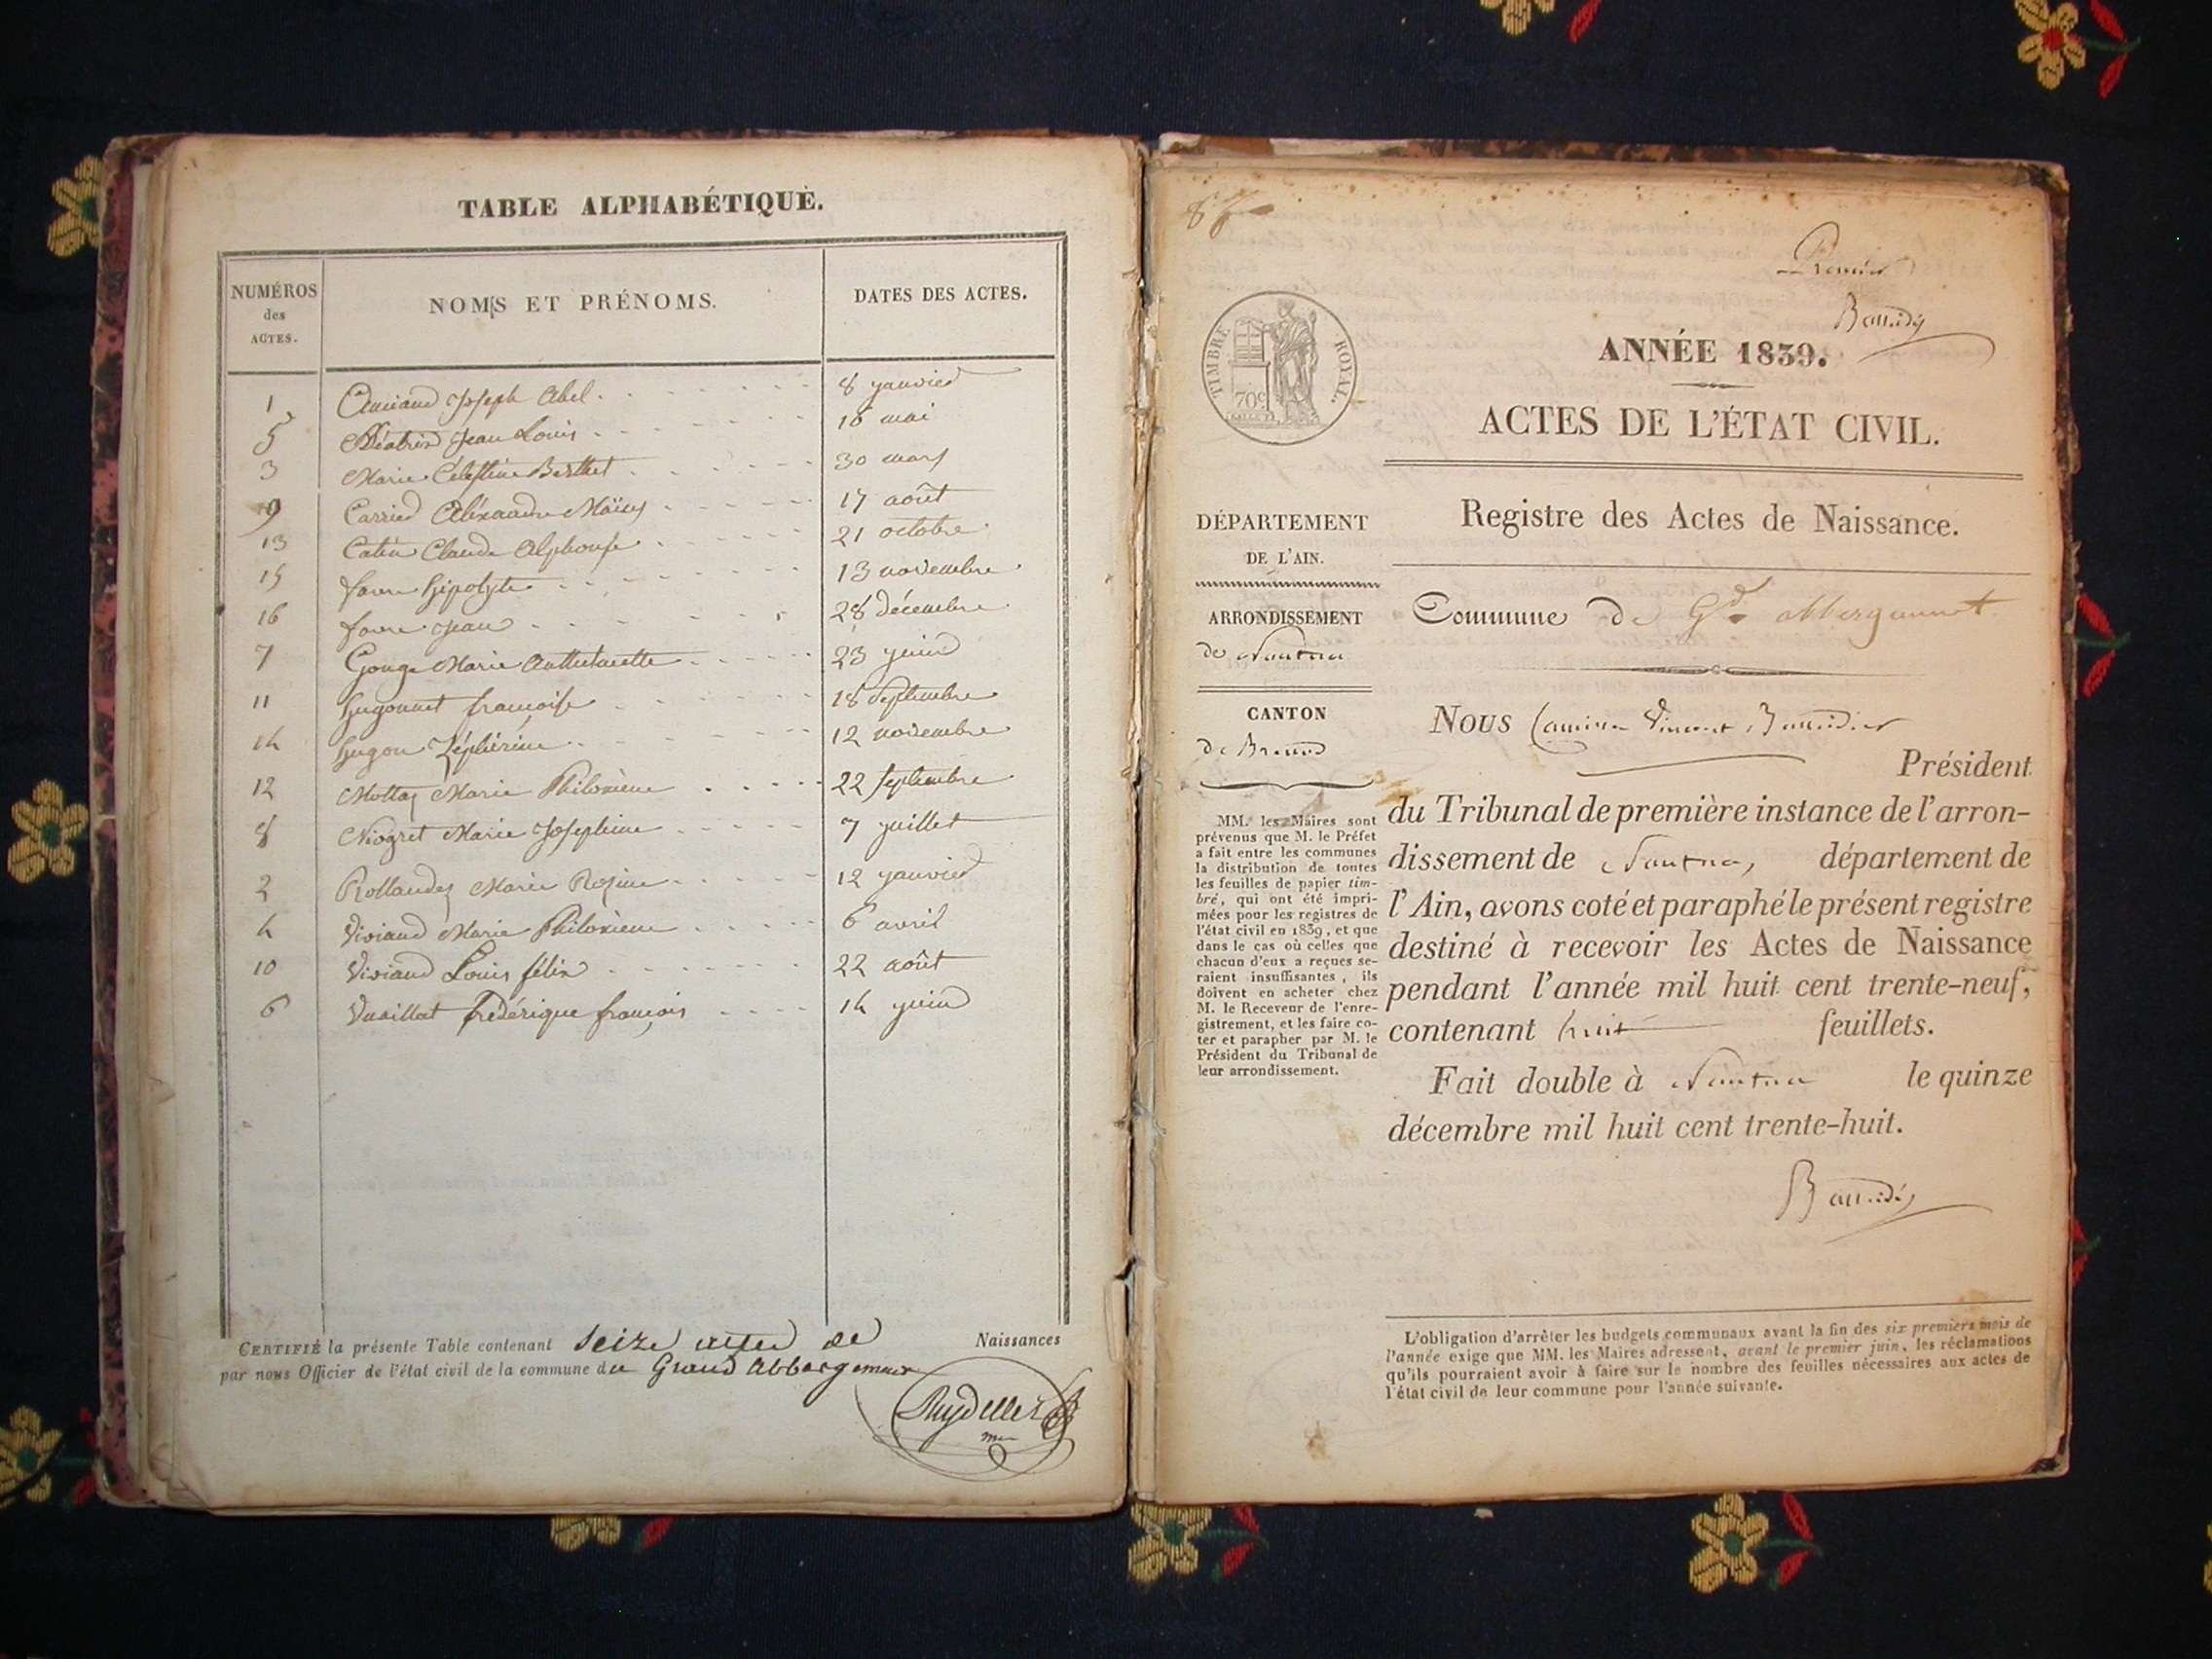 TABLE ALPHABÉTIQUE.
NUMÉROS des ACTES.
NOMS ET PRÉNOMS.
DATES DES ACTES.
1 Joseph Abel 8 janvier
5 Béatrix Jean Louis 16 mai
3 Marie Célestine Berthet 30 mars
9 Carrier Aléxandre Moïse 17 août
13 Catin Claude Alphonse 21 octobre
15 favre hipolyte 13 novembre
16 favre Jean 28 décembre
7 Gouge Marie 23 juin
11 hugonnet françoise 18 septembre
14 hugon Zéphérine 12 novembre
12 Mottaz Marie Philomène 22 septembre
8 Niogret Marie Joséphine 7 juillet
2 Rollandez Marie Rosine 12 janvier
4 Viviand Marie Philomène 6 avril
10 Viviand Louis félix 22 août
6 Vuaillat frédérique françois 14 juin
CERTIFIÉ la présente Table contenant Seize actes de Naissances
par nous Officier de l'état civil de la commune du Grand Abbergement
TIMBRE ROYAL.
70c
Premier
ANNÉE 1839.
ACTES DE L'ÉTAT CIVIL.
Registre des Actes de Naissance.
DÉPARTEMENT
DE L'AIN.
ARRONDISSEMENT
de Nantua
CANTON
de Brenod
MM. les Maires sont
prévenus que M. le Préfet
a fait entre les communes
la distribution de toutes
les feuilles de papier tim-
bré, qui ont été impri-
mées pour les registres de
l'état civil en 1839, et que
dans le cas où celles que
chacun d'eux a reçues se-
raient insuffisantes, ils
doivent en acheter chez
M. le Receveur de l'enre-
gistrement, et les faire co-
ter et parapher par M. le
Président du Tribunal de
leur arrondissement.
Commune de Gd. abbergement
Nous Vincent
Président
du Tribunal de première instance de l'arron-
dissement de Nantua, département de
l'Ain, avons coté et paraphé le présent registre
destiné à recevoir les Actes de Naissance
pendant l'année mil huit cent trente-neuf,
contenant huit feuillets.
Fait double à Nantua le quinze
décembre mil huit cent trente-huit.
L'obligation d'arrêter les budgets communaux avant la fin des six premiers mois de
l'année exige que MM. les Maires adressent, avant le premier juin, les réclamations
qu'ils pourraient avoir à faire sur le nombre des feuilles nécessaires aux actes de
l'état civil de leur commune pour l'année suivante.